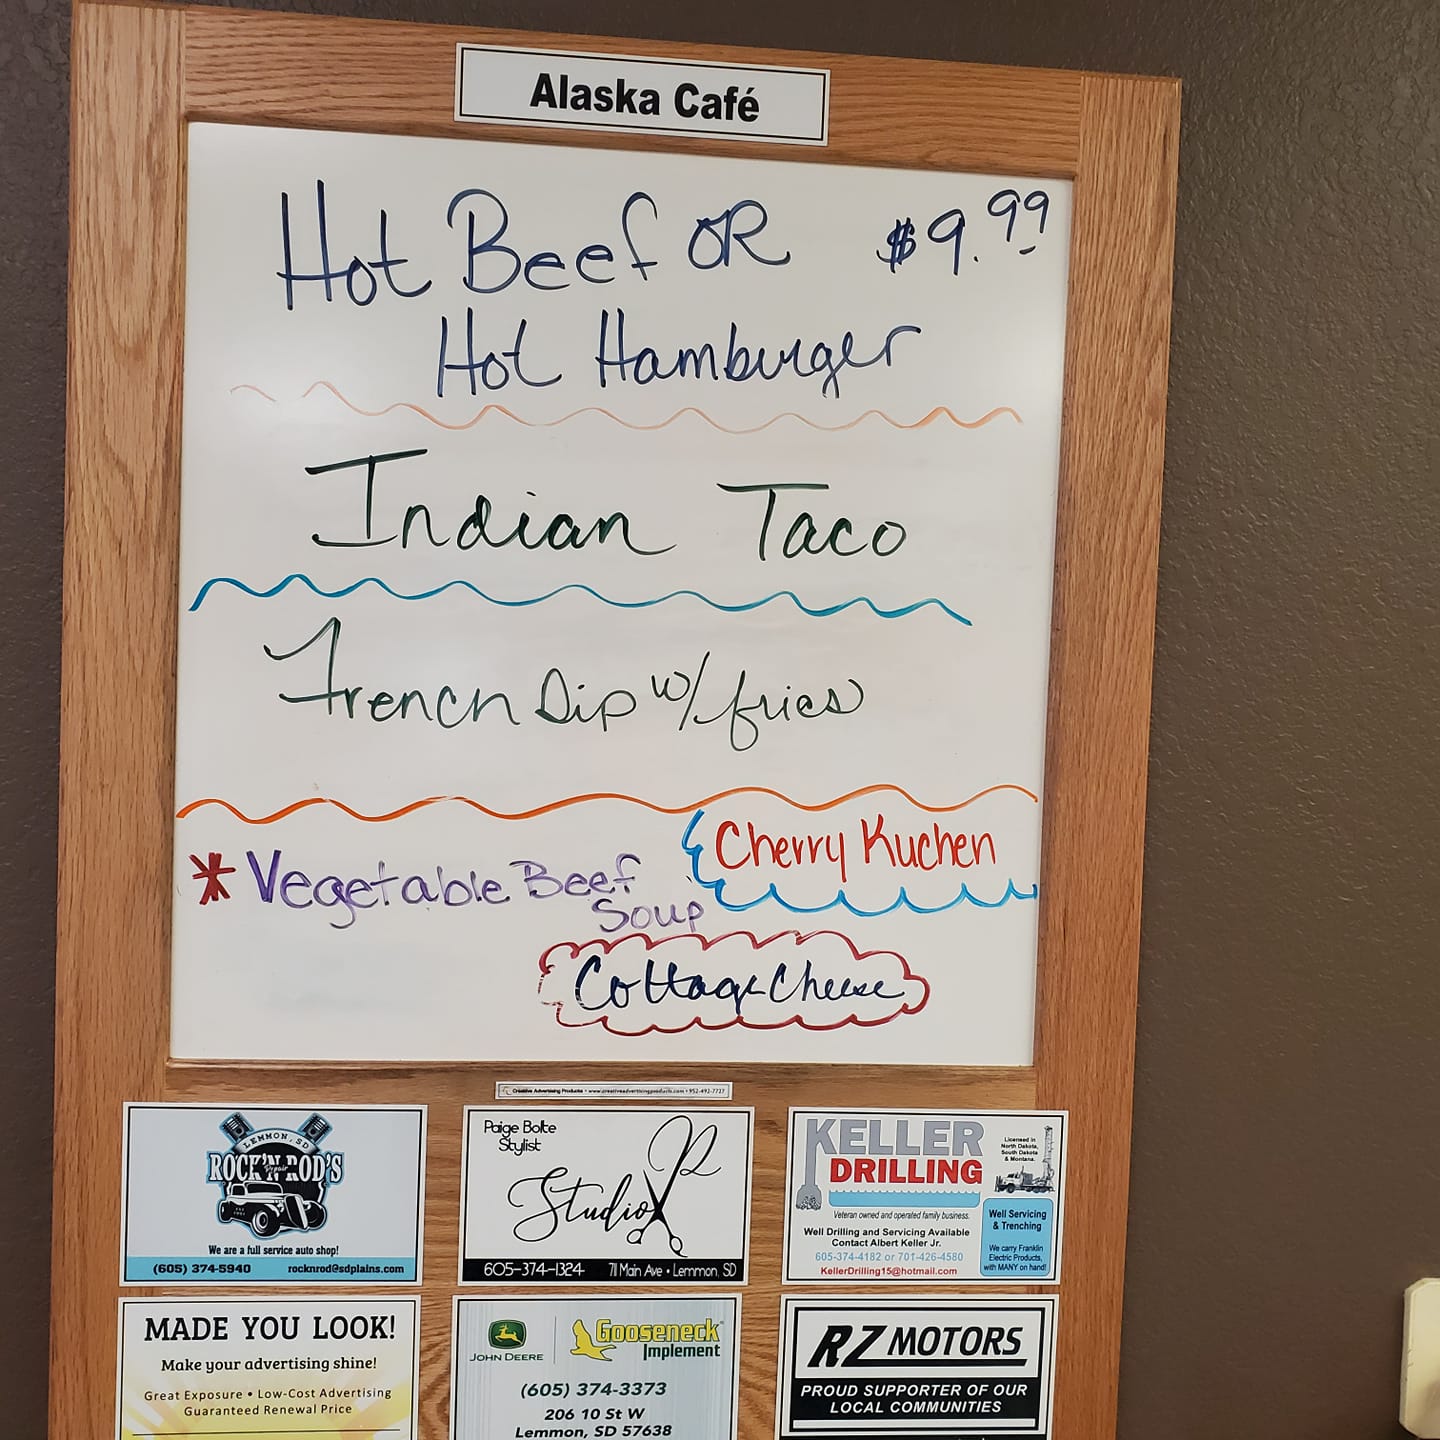 Alaska Café
Hot Beef OR $9.99
Hot Hamburger
Indian Taco
French Dip w/ fries
Cherry Kuchen
* Vegetable Beef
Soup
Cottage Cheese
Creative Advertising Products • www.creativeadvertisingproducts.com • 952-492-7727
LEMMON, SD
ROCK'N ROD'S
Repair
We are a full service auto shop!
(605) 374-5940 rocknrod@sdplains.com
Paige Bolte
Stylist
Studio R
605-374-1324 711 Main Ave • Lemmon, SD
KELLER
DRILLING
Licensed in
North Dakota,
South Dakota
& Montana.
Veteran owned and operated family business.
Well Drilling and Servicing Available
Contact Albert Keller Jr.
605-374-4182 or 701-426-4580
KellerDrilling15@hotmail.com
Well Servicing
& Trenching
We carry Franklin
Electric Products,
with MANY on hand!
MADE YOU LOOK!
Make your advertising shine!
Great Exposure • Low-Cost Advertising
Guaranteed Renewal Price
JOHN DEERE
Gooseneck
Implement
(605) 374-3373
206 10 St W
Lemmon, SD 57638
RZ MOTORS
PROUD SUPPORTER OF OUR
LOCAL COMMUNITIES